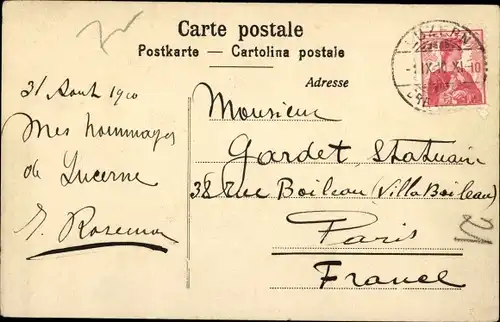 Carte postale
Postkarte — Cartolina postale
Adresse
LUZERN
31 Aout 1910
Mes hommages
de Lucerne
Monsieur
Gardet, Statuaire
38 rue Boileau (Villa Boileau)
Paris
France